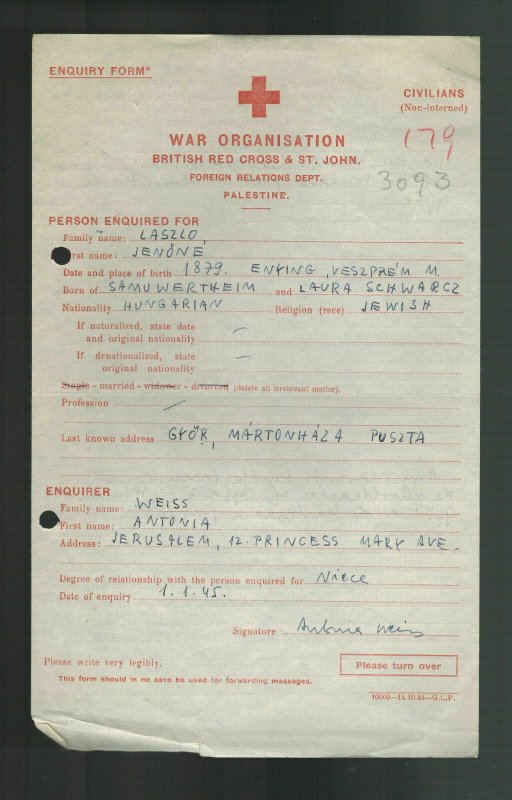 ENQUIRY FORM*
CIVILIANS
(Non-interned)
179
WAR ORGANISATION
BRITISH RED CROSS & ST. JOHN.
FOREIGN RELATIONS DEPT.
3093
PALESTINE.
PERSON ENQUIRED FOR
Family name: LASZLO,
First name: JENŐNE
Date and place of birth 1879. ENYING, VESZPRÉM M.
Born of SAMU WERTHEIM and LAURA SCHWARCZ
Nationality HUNGARIAN Religion (race) JEWISH
If naturalized, state date
and original nationality —
If denationalized, state
original nationality —
Single - married - widower - divorced (delete all irrelevant matter).
Profession —
Last known address GYŐR, MÁRTONHÁZA PUSZTA
ENQUIRER
Family name: WEISS
First name: ANTONIA
Address: JERUSALEM, 12. PRINCESS MARY AVE.
Degree of relationship with the person enquired for Niece
Date of enquiry 1.1.45.
Signature Antonia Weiss
Please write very legibly.
Please turn over
This form should in no case be used for forwarding messages.
10000—14.10.44—G.C.P.